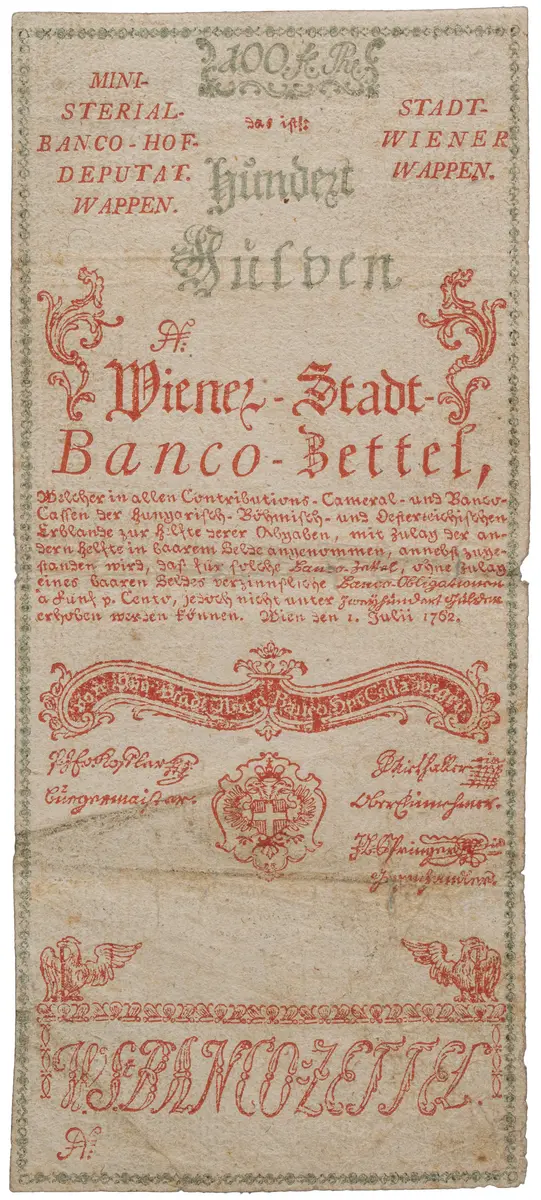 100 fl. Rh.
MINI-
STERIAL-
BANCO-HOF-
DEPUTAT.
WAPPEN.
das ist:
STADT-
WIENER
WAPPEN.
Hundert
Gulden
N:
Wiener-Stadt-
Banco-Zettel,
Welcher in allen Contributions-Cameral-und Banco-
Cassen der Hungarisch-Böhmisch-und Oesterreichischen
Erblande zur Helfte derer Abgaben, mit Zulag der an-
dern Helfte in baarem Gelde angenommen, annebst zuge-
standen wird, das für solche Banco-Zettel, ohne Zulag
eines baaren Geldes verzinnsliche Banco-Obligationen
a Fünf p. Cento, jedoch nicht unter zweyhundert Gulden
erhoben werden können. Wien den 1. Julii 1762.
Von Wien Stadt Banco
Burgermaister.
Ober Einnehmer.
Springer
W. St. BANCO-ZETTEL.
N: